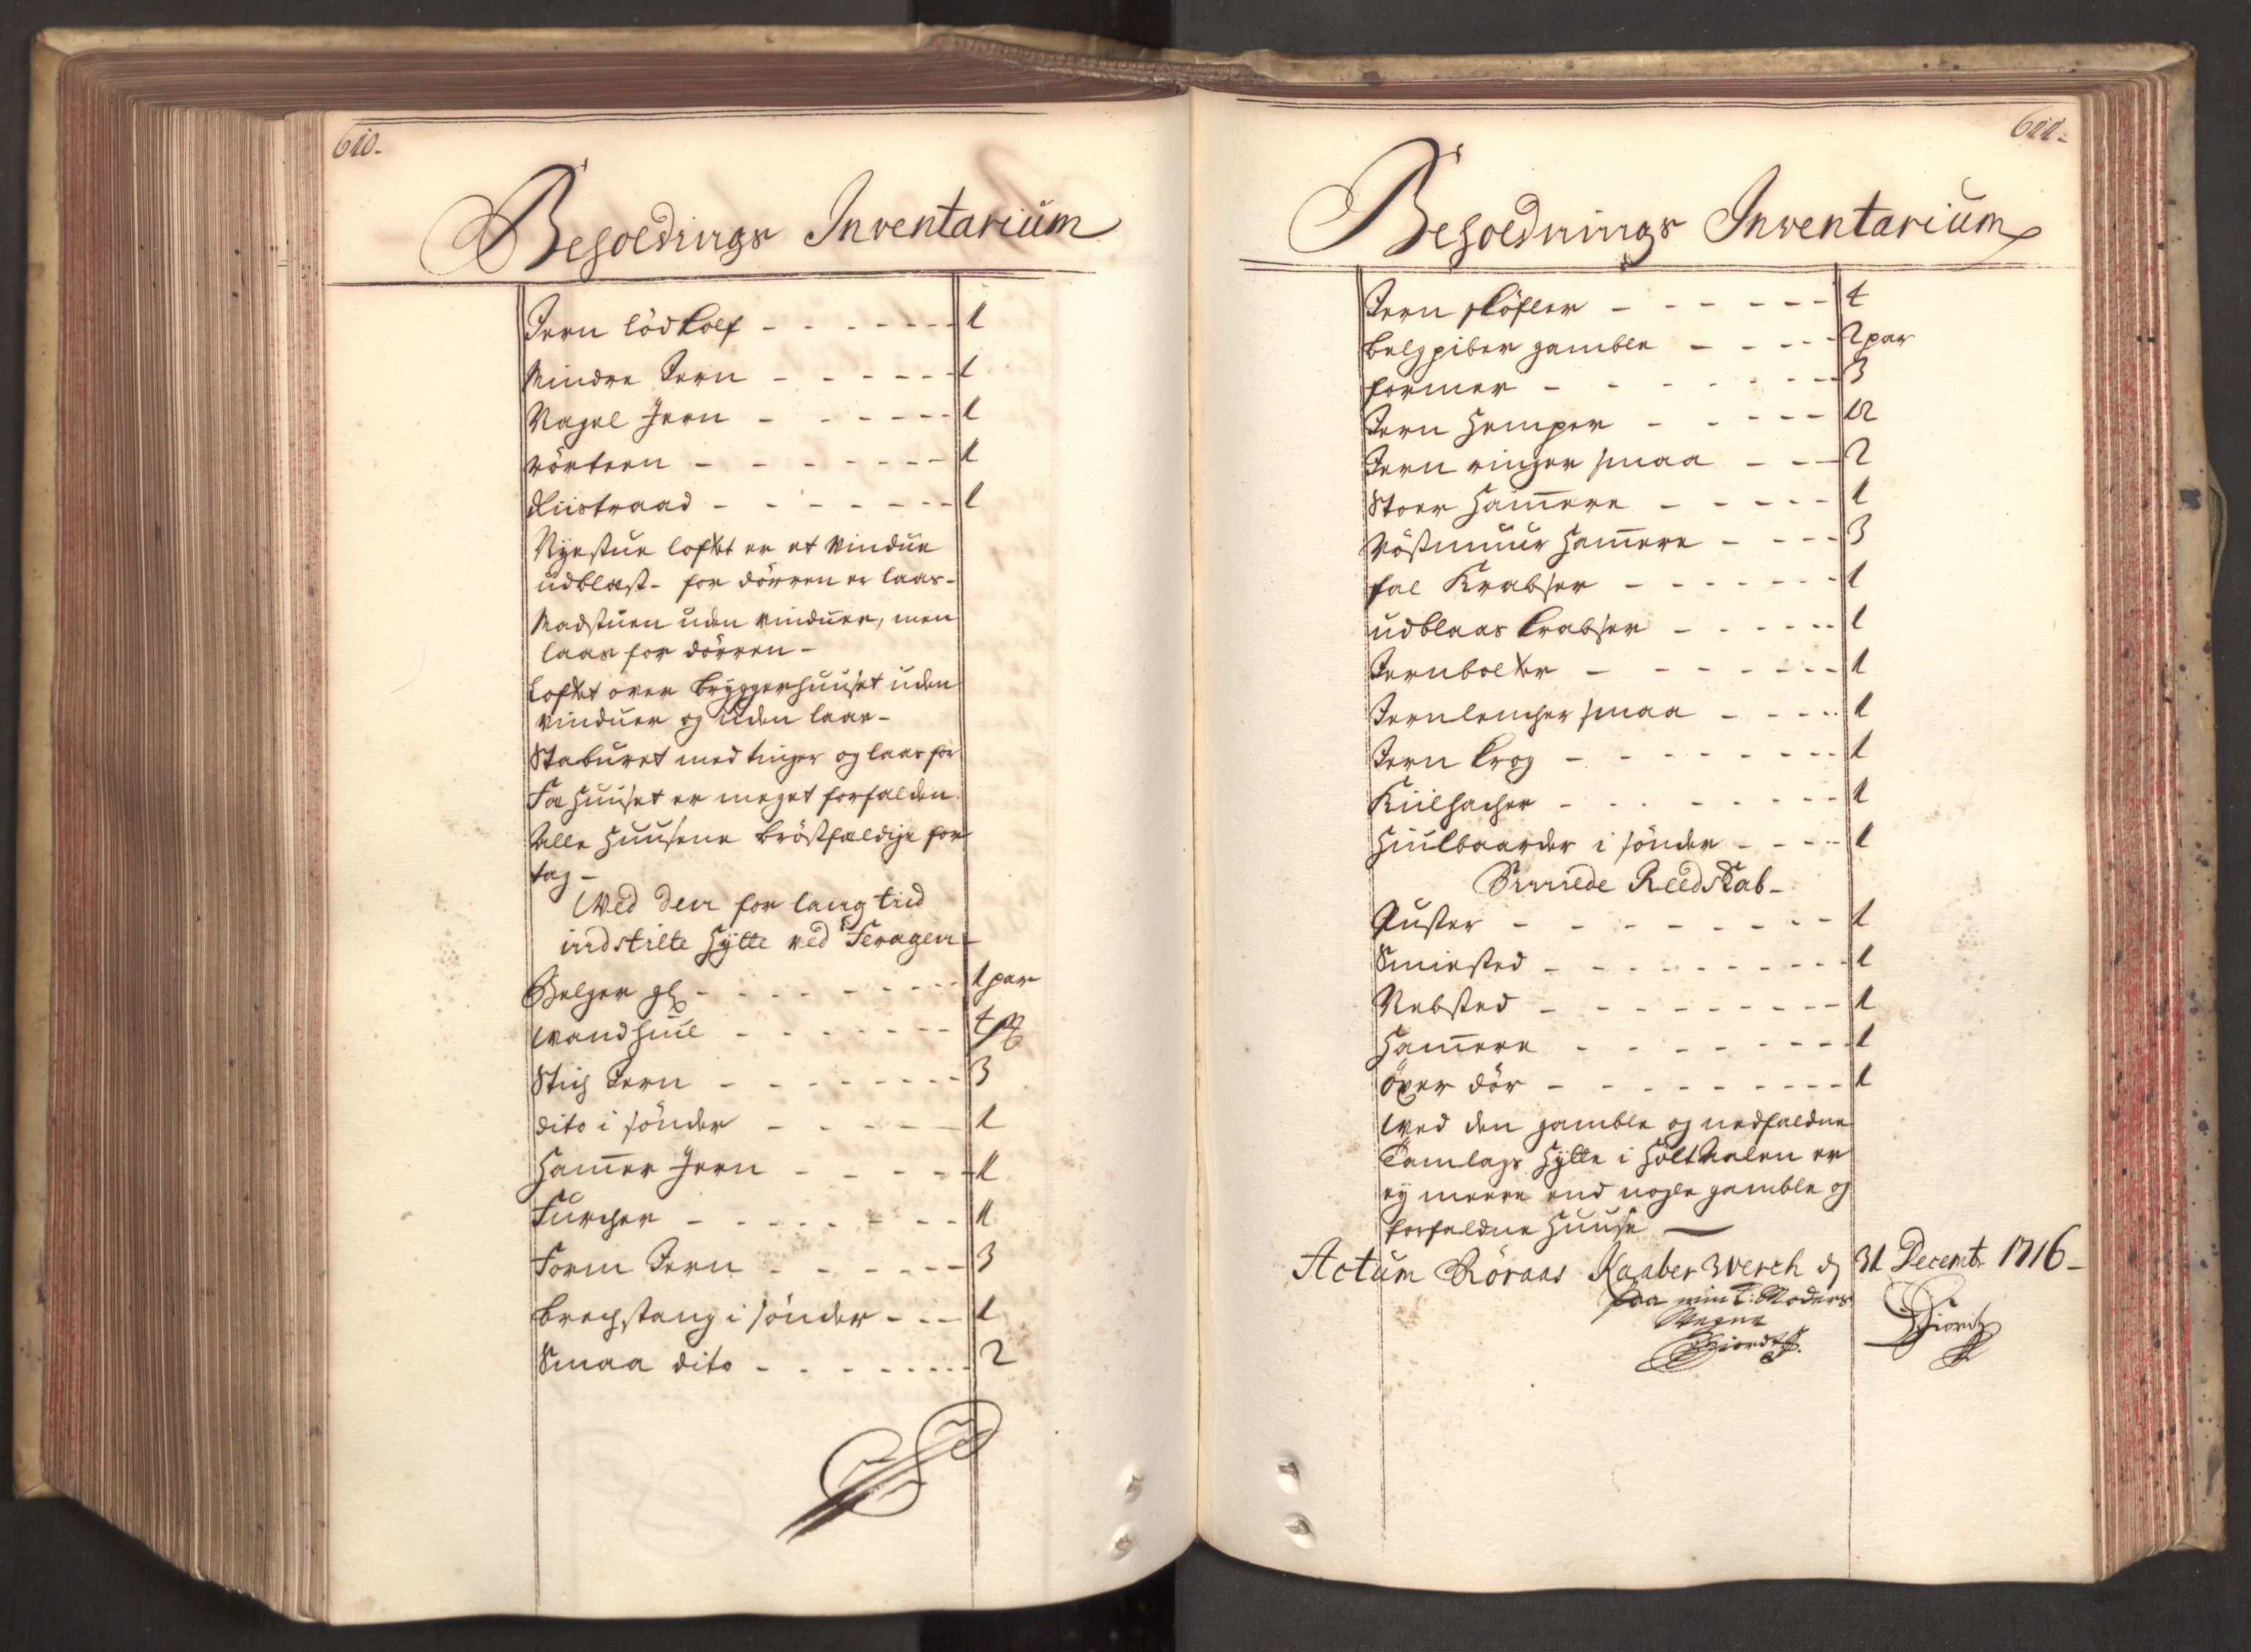 610.
Beholdings Inventarium
Jern lödkolf - - - - - - 1
Mindre Jern - - - - - - 1
Nagel Jern - - - - - - 1
rörtern - - - - - - - 1
Riistraad - - - - - - - 1
Nyestue loftet er et vindue
udblæst - for dörren er laas -
Madstuen uden vinduer, men
laas for dörren -
Loftet over bryggerhuuset uden
vinduer og uden laas -
Staburet med tinger og laas for
Fæhuuset er meget forfalden
Alle Huusene bröstfældige for
tag -
Wed den for lang tiid
indstilte Hytte ved Feragen -
Belger gl - - - - - - - 1 par
wandhiul - - - - - - -
Stich Jern - - - - - - - 3
dito i sönder - - - - - 1
Hammer Jern - - - - - 1
Furcher - - - - - - - 1
Form Jern - - - - - - 3
brechstang i sönder - - - 1
Smaa dito - - - - - - - 2
611.
Beholdnings Inventarium
Jern sköfler - - - - - - 4
belgpiber gamble - - - - 2 par
former - - - - - - - 3
Jern Hemper - - - - - 12
Jern ringer smaa - - - 2
Stoer Hammere - - - - - 1
röstmuur Hammere - - - - 3
fal Krabser - - - - - - 1
udblaas krabser - - - - - 1
Jernbolter - - - - - - 1
Jernlencher smaa - - - - 1
Jern krog - - - - - - - 1
Kiilhacher - - - - - - - 1
Hiulbaarder i sönder - - - - 1
Smiede Reedskab -
Puster - - - - - - - - 1
Smiested - - - - - - - - 1
Nebsted - - - - - - - - 1
Hammere - - - - - - - 1
över dör - - - - - - - - 1
wed den gamble og nedfaldne
Tamlags Hytte i Holtaalen er
ey meere end nogle gamble og
forfaldne Huuse —
Actum Röraas Kaaber Werch d 31 Decembr 1716 -
paa min S: Moders
Vegne
Hiordt
Hiort